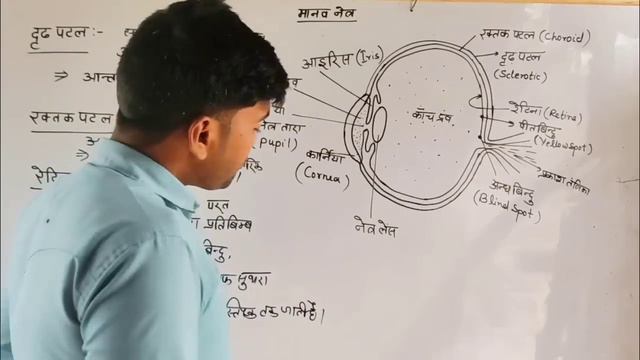 मानव नेत्र
दृढ़ पटल :-
⇒ आन्त
रक्तक पटल
रेटि
परत
प्रतिबिम्ब
बिन्दु,
सुथरा
तक जाती है।
आइरिस (Iris)
नेत्र तारा
(Pupil)
कार्निया
(Cornea)
नेत्र लेंस
काँच द्रव
रक्तक पटल (Choroid)
दृढ़ पटल
(Sclerotic)
रेटिना (Retina)
पीत बिन्दु
(Yellow Spot)
प्रकाश तंत्रिका
अन्ध बिन्दु
(Blind Spot)